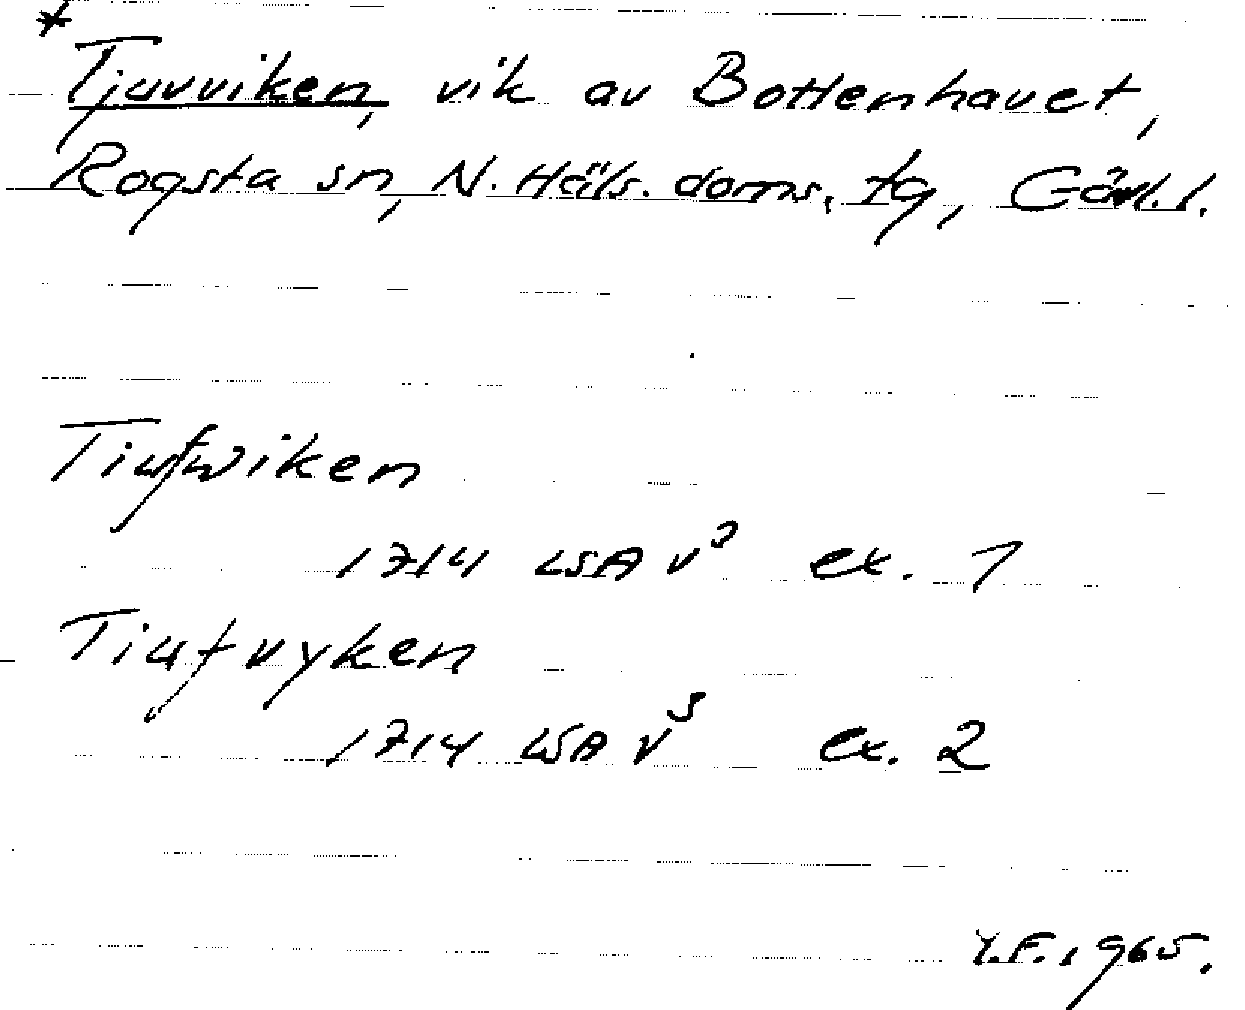 *
Tjuvviken, vik av Bottenhavet,
Rogsta sn, N. Häls. doms. tg, Gävl. l.
Tiufwiken
1714 LSA V³ ex. 1
Tiufvyken
1714 LSA V³ ex. 2
Y.F. 1965.